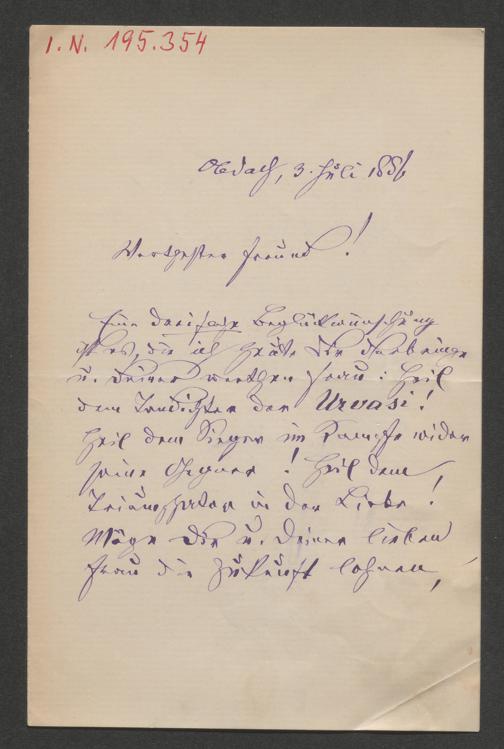 I.N. 195.354
Obdach, 3. Juli 1886
Werthester Freund!
Eine dreifache Beglückwünschung
ist es, die ich heute Dir darbringe
u. Deiner werthen Frau: Heil
dem Tondichter der Urvasi!
Heil dem Sieger im Kampfe wider
seine Gegner! Heil dem
Triumphator in der Liebe!
Möge Dir u. Deiner lieben
Frau die Zukunft lohnen,